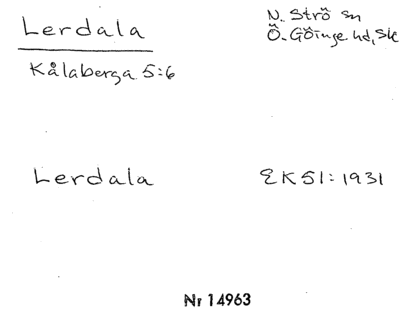 Lerdala
N. Strö sn
Ö. Göinge hd, Sk
Kålaberga 5:6
Lerdala
EK51:1931
Nr 14963